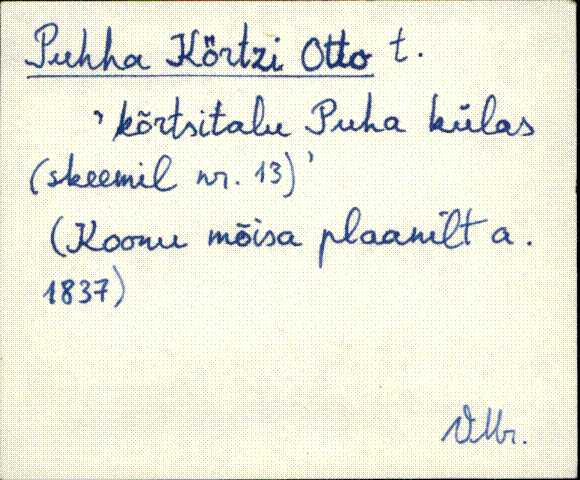 Puhha Körtzi Otto t.
'kõrtsitalu Puha külas
(skeemil nr. 13)'
(Koonu mõisa plaanilt a.
1837)
VMr.